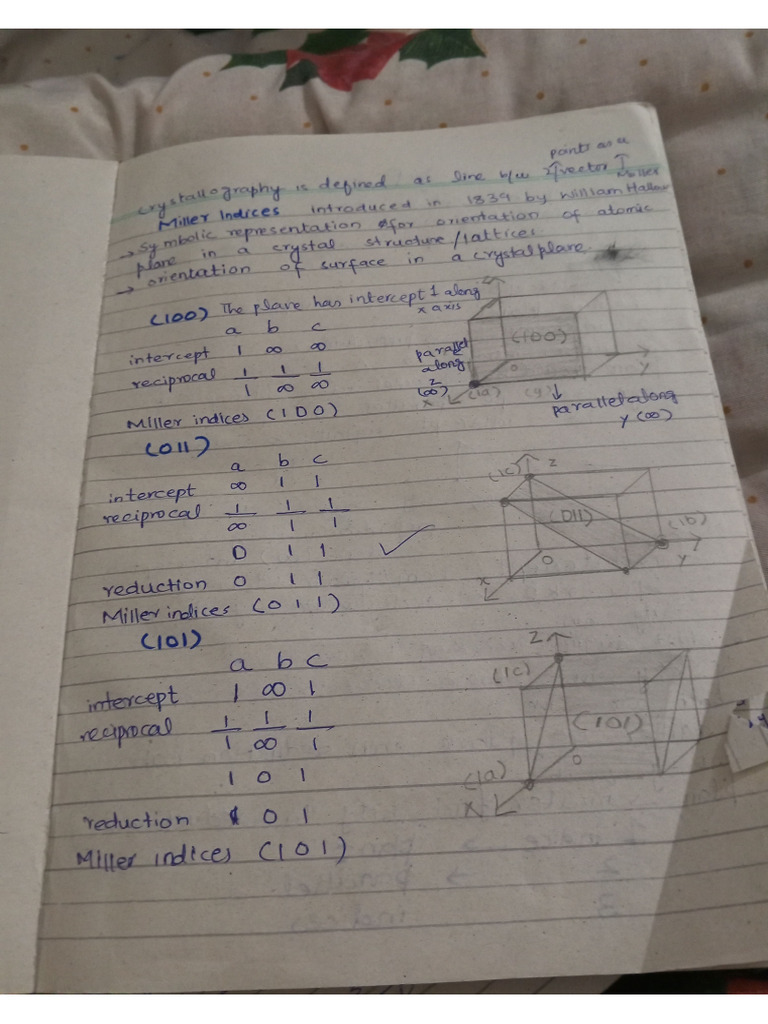 points as a
crystallography is defined as line b/w 2/vector
Miller Indices introduced in 1839 by William Hallow Miller
→ Symbolic representation for orientation of atomic
plane in a crystal structure/lattices
→ orientation of surface in a crystal plane.
(100) The plave has intercept 1 along
x axis
a b c
intercept 1 ∞ ∞
reciprocal 1/1 1/∞ 1/∞
Miller indices (100)
parallel
along
z
(∞)
(100)
x (1a) (y) y
o
parallel along
y (∞)
(011)
a b c
intercept ∞ 1 1
reciprocal 1/∞ 1/1 1/1
0 1 1 ✓
reduction 0 1 1
Miller indices (011)
(1c) z
(011) (1b)
o y
x
(101)
a b c
intercept 1 ∞ 1
reciprocal 1/1 1/∞ 1/1
1 0 1
reduction 1 0 1
Miller indices (101)
z
(1c)
(101)
(1a) o
x